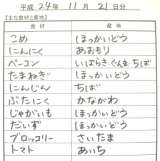 平成 24年 11月 21日分
【主な食材と産地】
食材 産地
こめ ほっかいどう
にんにく あおもり
ベーコン いばらき ぐんま ちば
たまねぎ ほっかいどう
にんじん ちば
ぶたにく かながわ
じゃがいも ほっかいどう
だいず ほっかいどう
ブロッコリー さいたま
トマト あいち